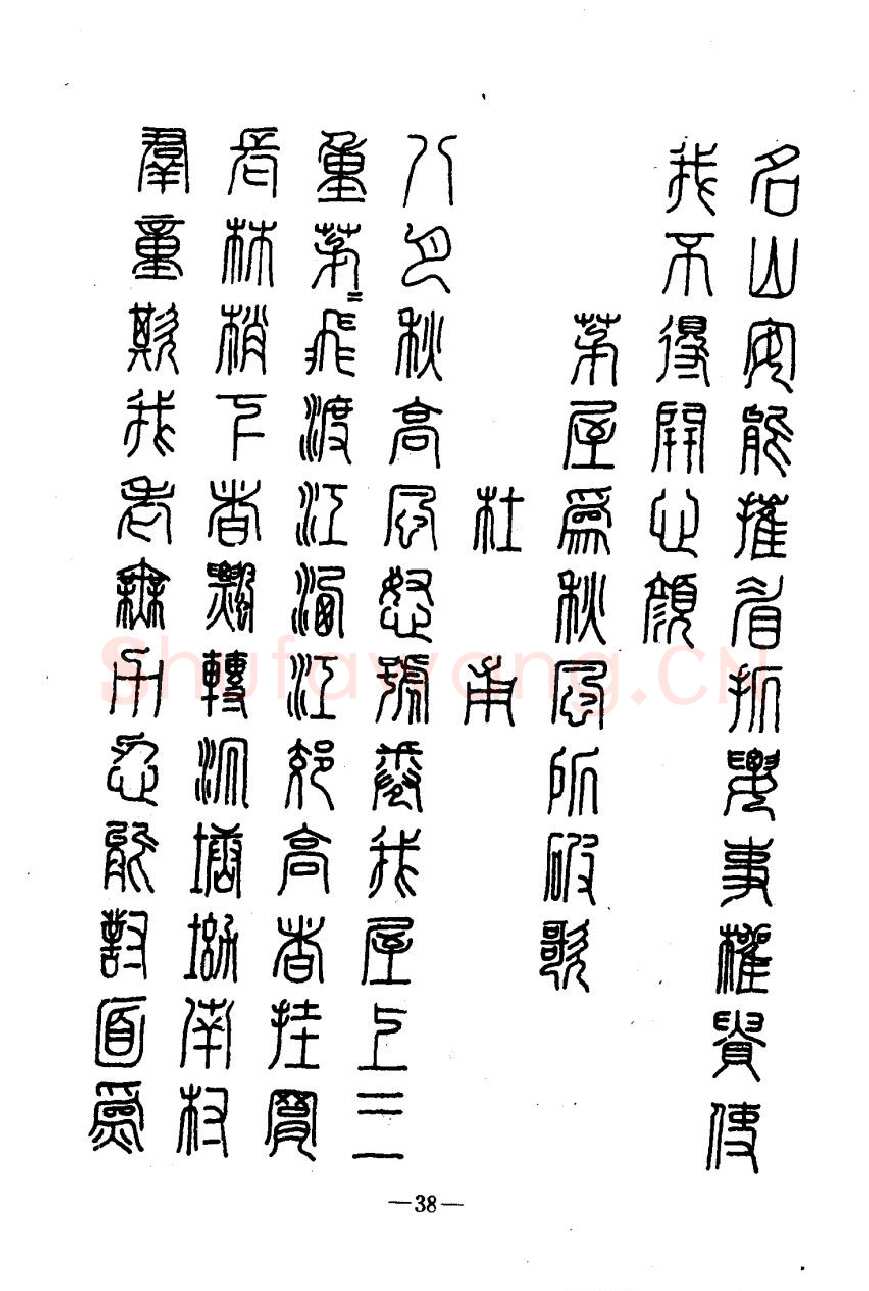 名山安能摧眉折腰事權貴使
我不得開心顏
茅屋爲秋風所破歌
杜甫
八月秋高風怒號卷我屋上三
重茅=飛渡江灑江郊高者挂罥
長林梢下者飄轉沉塘坳南村
羣童欺我老無力忍能對面爲
—38—
Shufawang.CN